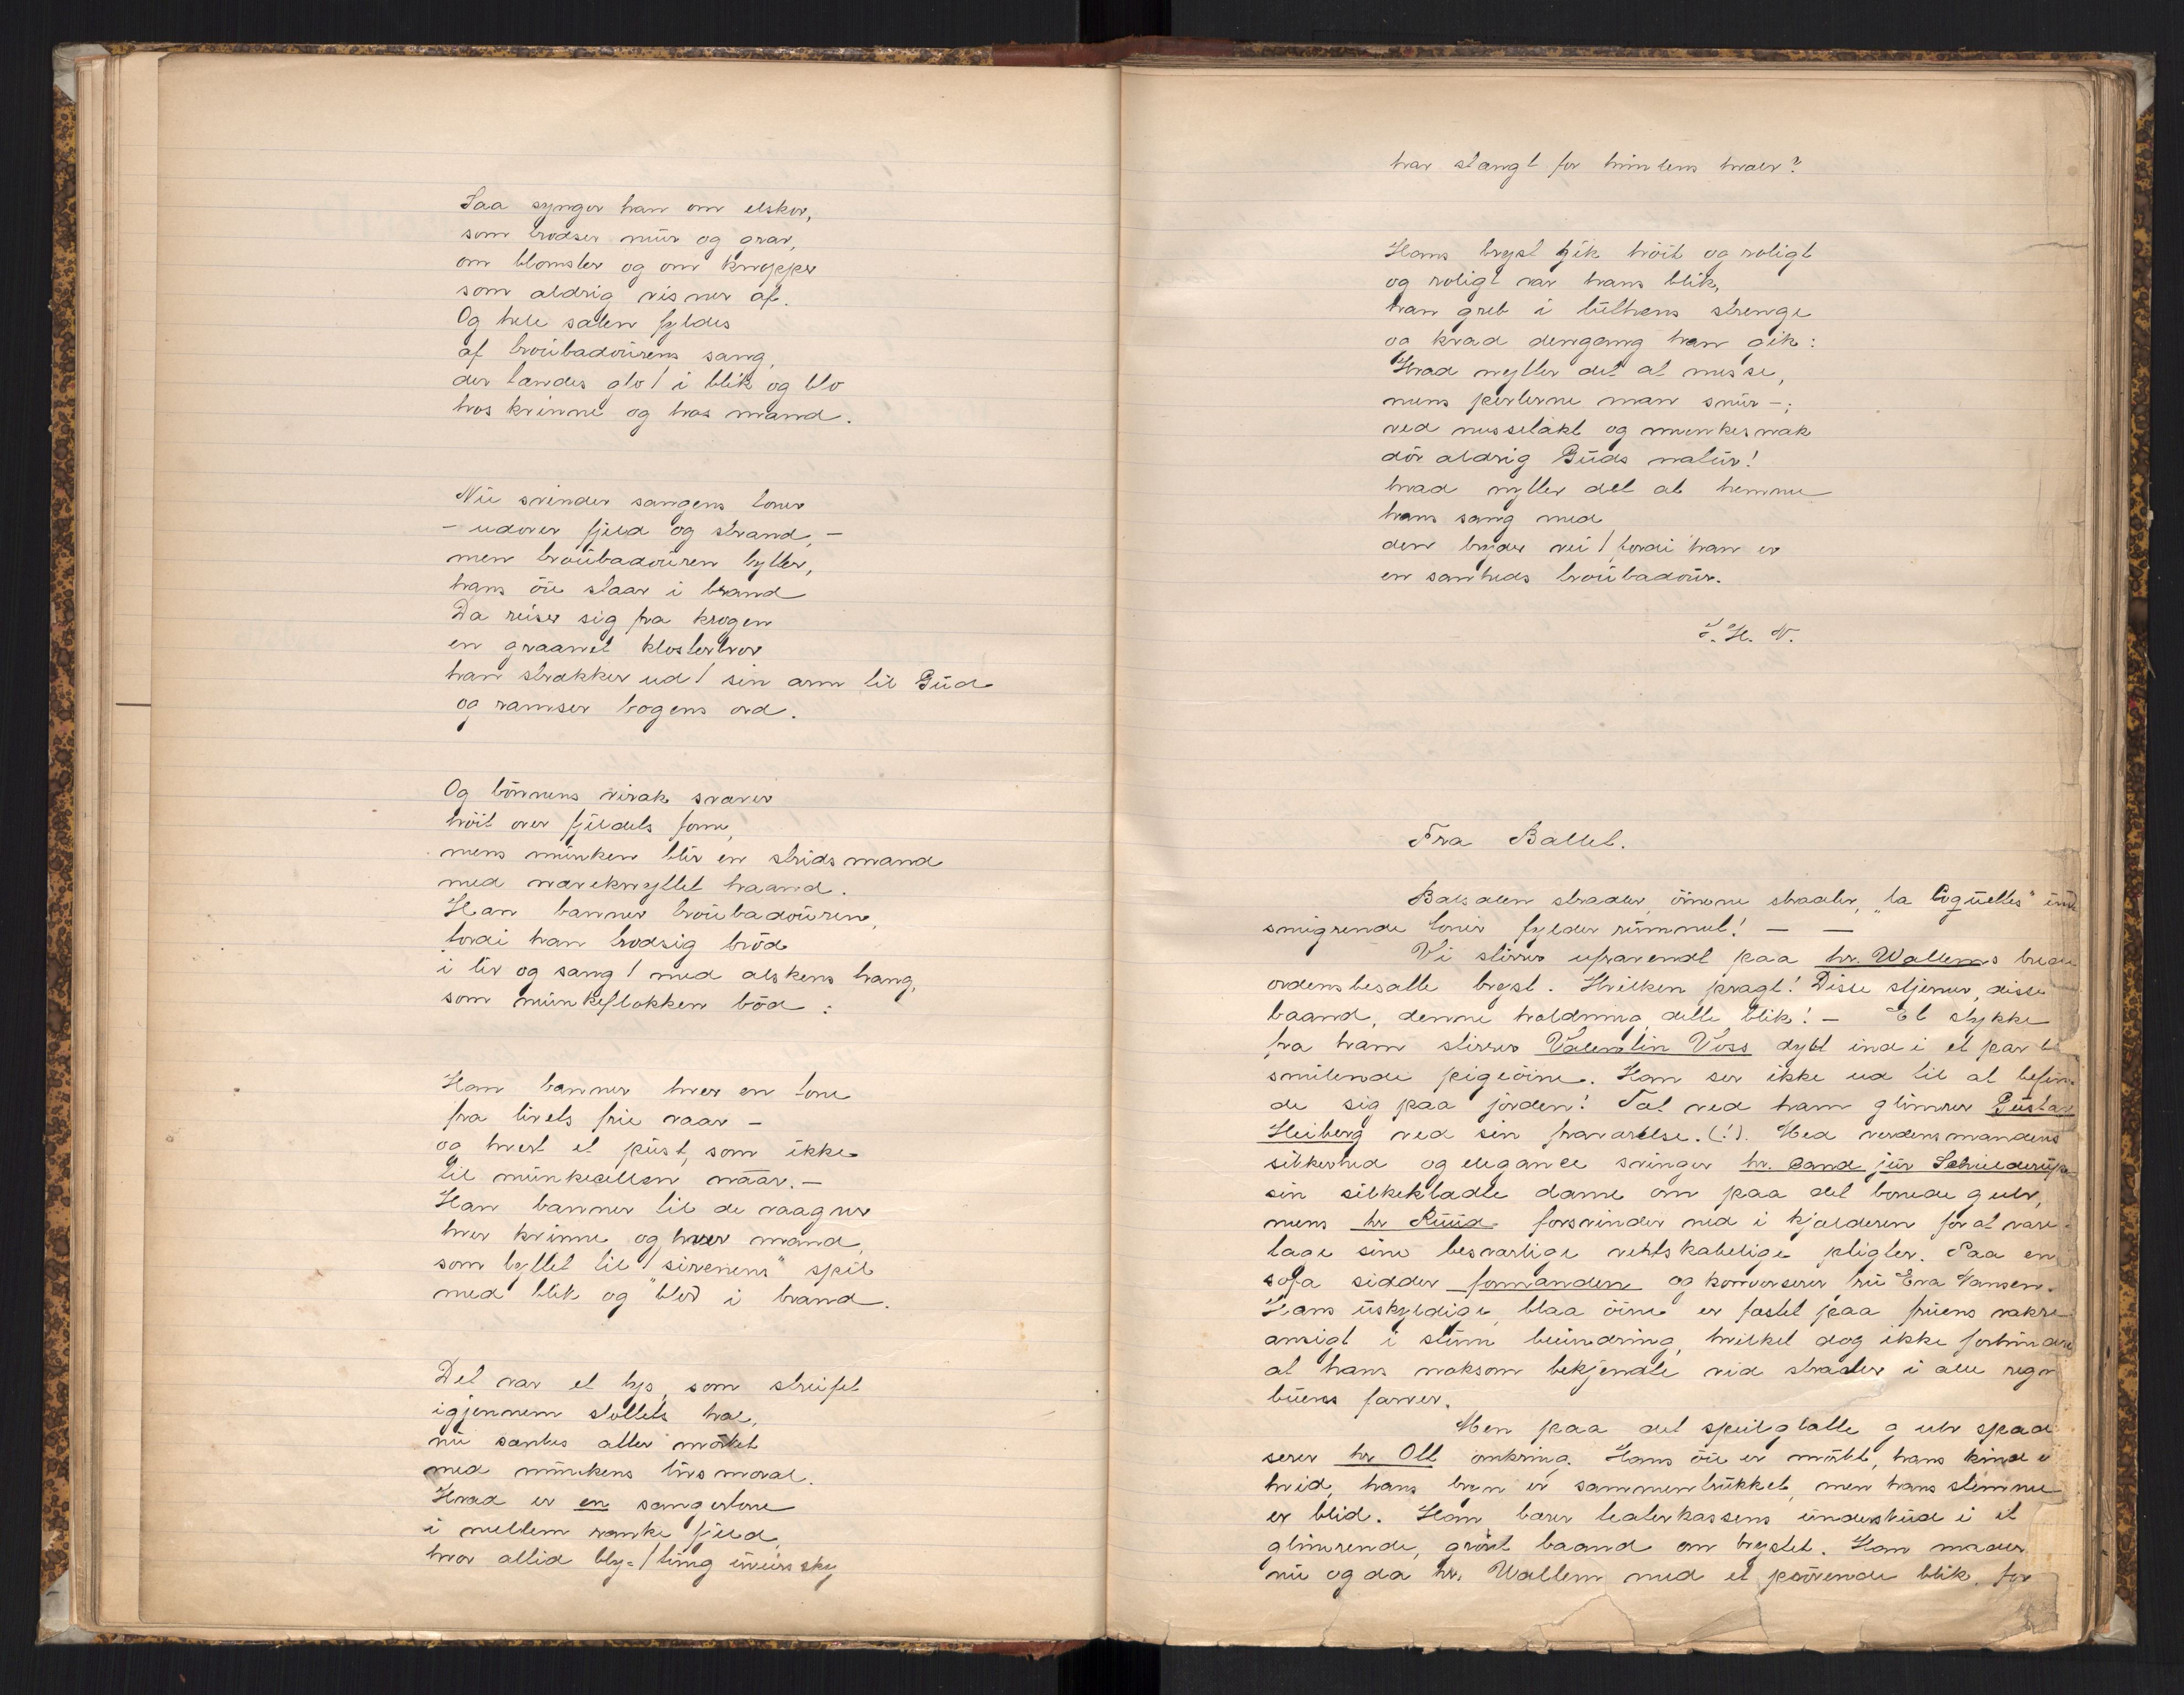 Saa synger han om elskov,
som trodser mur og grav,
om blomster og om knopper
som aldrig visner af.
Og hele salen fyldes
af troubadourens sang,
der tændes glo/ i blik og blo
hos kvinne og hos mand.
Nu svinder sangens toner
– udover fjeld og strand, –
men troubadouren lytter,
hans öie staar i brand
Da reiser sig fra krogen
en graanet klosterbror
han strækker ud/ sin arm til Gud
og ramser bogens ord.
Og bönnens virak svæver
höit over fjeldets fonn,
mens munken blir en stridsmand
med næveknyttet haand.
Han banner troubadouren,
fordi han trodsig bröd
i liv og sang/ med alskens trang,
som munkeflokken böd:
Han banner hver en tone
fra livets frie vaar –
og hvert et pust, som ikke
til munkecellen naar. –
Han banner til de vaagner
hver kvinne og hver mand,
som lyttet til "sirenens" spil
med blik og blod i brand.
Det var et lys, som streifet
igjennem slottets hal,
nu sænkes atter mörket
med munkens livsmoral.
Hvad er en sangertone
i mellem ranke fjeld,
hvor altid bly=/tung uveirssky
har stængt for himlens hvælv?
Hans bryst gik höit og roligt
og roligt var hans blik,
han greb i luthens strenge
og kvad dengang han gik:
Hvad nytter det at messe,
mens perlerne man snur –;
ved messetakt og munkesnak
dör aldrig Guds natur!
hvad nytter det at hemme
hans sang med
den bryder vei/ fordi han er
en sanheds troubadour.
S. H. N.
Fra Ballet.
Balsalen straaler, öinene straaler, "la Coquettes" ind
smigrende toner fylder rummet! — —
Vi stirrer ufravendt paa hr. Wallems brede
ordensbesatte bryst. Hvilken pragt! Disse stjerner, disse
baand, denne holdning, dette blik! – Et stykke
fra ham stirrer Valentin Voss dybt ind i et par
smilende pigeöine. Han ser ikke ud til at befin-
de sig paa jorden! Tæt ved ham glimrer Gustav
Heiberg ved sin fraværelse. (!). Med verdensmandens
sikkerhed og elegance svinger hr. cand jur Schielderup
sin silkeklædte dame om paa det bonede gulv,
mens hr Ruud forsvinder ned i kjælderen for at vare-
tage sine besværlige vertskabelige pligter. Paa en
sofa sidder formanden og konverserer fru Eva Hansen.
Hans uskyldige blaa öine er fæstet paa fruens vakre
ansigt i stum beundring, hvilket dog ikke forhindrer
at hans noksom bekjendte vid straaler i alle regn
buens farver.
Men paa det speilglatte gulv spad
serer hr. Ott omkring. Hans öie er mörkt, hans kind e
hvid, hans bryn er sammentrukket, men hans stemme
er blid. Han bærer teaterkassens underskud i et
glimrende, grönt baand om brystet. Han maaler
nu og da hr. Wallem med et prövende blik, for